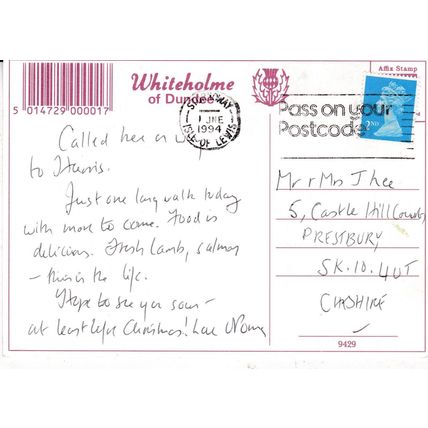 Whiteholme
of Dundee
5 014729 000017
Affix Stamp
STORNOWAY
1 JNE
1994
ISLE OF LEWIS
Pass on your
Postcode
2ND
Called here on way
to Harris.
Just one long walk today
with more to come. Food is
delicious. Fresh lamb, salmon
– this is the life.
Hope to see you soon –
at least before Christmas! Love
Mr & Mrs J Lee
5, Castle Hill
PRESTBURY
SK.10.4UT
CHESHIRE
9429